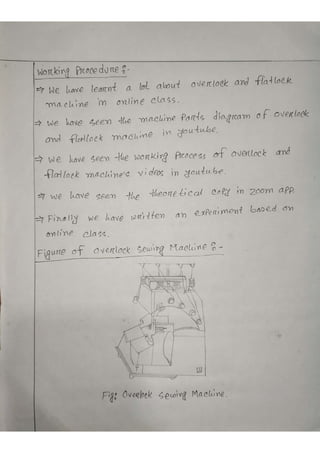 Working Procedure :-
⇒ We have learnt a lot about overlock and flatlock
machine in online class.
⇒ We have seen the machine Parts diagram of overlock
and flatlock machine in youtube.
⇒ We have seen the working Process of overlock and
flatlock machine's videos in youtube.
⇒ we have seen the theoretical copy in zoom app
⇒ Finally we have written an experiment based on
online class.
Figure of overlock sewing Machine :-
Fig: Overlock Sewing Machine.